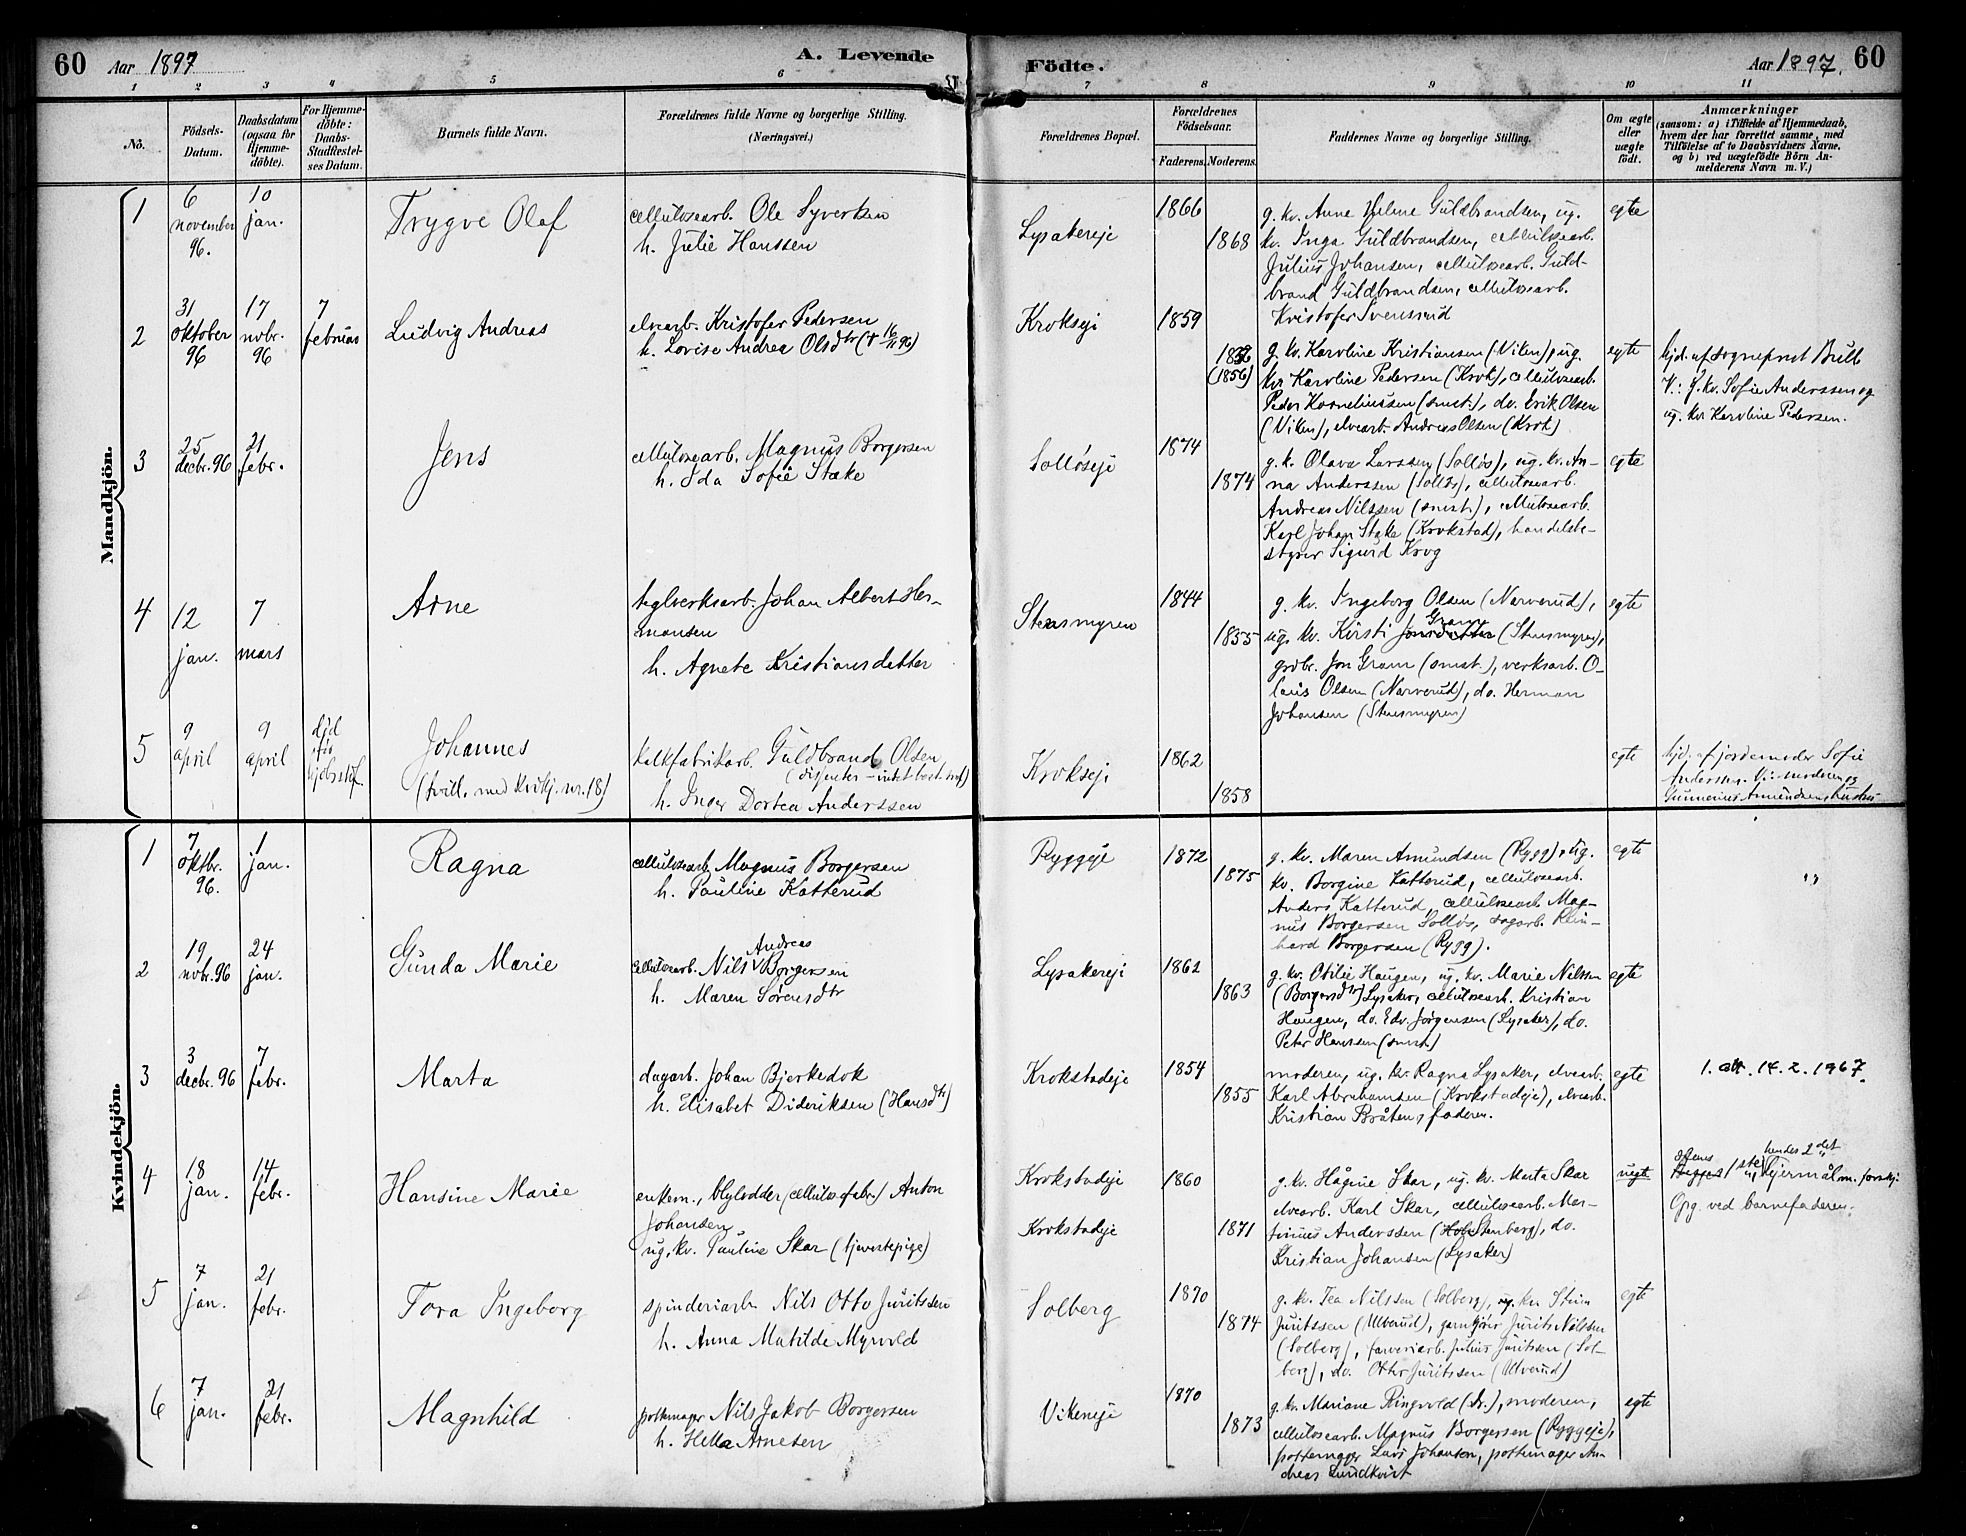 60 Aar 1897 A. Levende Födte. Aar 1897. 60
1 2 3 4 5 6 7 8 9 10 11
No.
Födsels-
Datum.
Daabsdatum
(ogsaa for
Hjemme-
döbte).
For Hjemme-
döbte:
Daabs-
Stadfæstel-
ses Datum.
Barnets fulde Navn.
Forældrenes fulde Navne og borgerlige Stilling.
(Næringsvei.)
Forældrenes Bopæl.
Forældrenes
Födselsaar.
Faderens. Moderens.
Faddernes Navne og borgerlige Stilling.
Om ægte
eller
uægte
födt.
Anmærkninger
(saasom: a) i Tilfælde af Hjemmedaab,
hvem der har forrettet samme, med
Tilföielse af to Daabsvidners Navne,
og b) ved uægtefödte Börn An-
melderens Navn m. V.)
Mandkjön.
1
6
november
96.
10
jan.
Trygve Olaf
cellulosearb. Ole Syvertsen
h. Julie Hanssen
Lysakereje
1866
1868
g. kv. Anne Guldbrandsen, ug.
kv. Inga Guldbrandsen, cellulosearb.
Julius Johansen, cellulosearb. Guld-
brand Guldbrandsen, cellulosearb.
Kristofer Svensrud
egte
2
31
oktober
96
17
nobr.
96
7
februar
Ludvig Andreas
elvearb. Kristofer Pedersen
h. Lovise Andrea Olsdtr († 16/11 96)
Krokseje
1859
(1856)
g. kv. Karoline Kristiansen (Viken), ug.
kv. Karoline Pedersen (Krok), cellulosearb.
Peder Korneliussen (smst.), do. Erik Olsen
(Viken), elvearb. Andreas Olsen (Krok)
egte
hjd. af sogneprest Bull
V.: g. kv. Sofie Anderssen og
ug. kv. Karoline Pedersen.
3
25
decbr. 96
21
febr.
Jens
cellulosearb. Magnus Borgersen
h. Ida Sofie Stake
Solløseje
1874
1874
g. k. Olava Larssen (Solløs), ug. kv. An-
na Anderssen (Solløs), cellulosearb.
Andreas Nilssen (smst.), cellulosearb.
Karl Johan Stake (Krokstad), handelsbe-
styrer Sigurd Krog
egte
4
12
jan.
7
mars
Arne
teglverksarb. Johan Albert Her-
mansen
h. Agnete Kristiansdatter
Stensmyren
1844
1855
g. kv. Ingeborg Olsen (Narverud),
Gram
ug. kv. Kirsti Jonsdatter (Stensmyren),
grdbr. Jon Gram (smst.), verksarb. O-
lais Olsen (Narverud), do. Herman
Johansen (Stensmyren)
egte
5
9
april
9
april
død
før
Johannes
(tvill. med kvikj. nr. 18)
kalkfabrikarb. Guldbrand Olsen
h. Inger Dortea Anderssen
Krokseje
1862
1858
egte
hjd. af jordemoder Sofie
Anderssen. V.: moderen og
Gunnerius Amundsen
Kvindekjön.
1
7
oktbr.
96.
1
jan.
Ragna
cellulosearb. Magnus Borgersen
h. Pauline Katterud
Ryggeje
1872
1875
g. kv. Maren Amundsen (Rygg), ug.
kv. Borgine Katterud, cellulosearb.
Anders Katterud, cellulosearb. Mag-
nus Borgersen Solløs, dagarb. Rein-
hard Borgersen (Rygg).
egte
2
19
nobr. 96
24
jan.
Gunda Marie
Andreas
cellulosearb. Nils Borgersen
h. Maren Sørensdtr
Lysakereje
1862
1863
g. kv. Otilie Haugen, ug. kv. Marie Nilssen
(Borgersdtr) Lysaker, cellulosearb. Kristian
Haugen, do. Edv. Jørgensen (Lysaker), do.
Peter Hanssen (smst.)
egte
3
3
decbr. 96
7
febr.
Marta
dagarb. Johan Bjerkedok
h. Elisabet Dideriksen (Hansdtr)
Krokstadeje
1854
1855
moderen, ug. kv. Ragna Lysaker, elvearb.
Karl Abrahamsen (Krokstadeje), elvearb.
Kristian Bråten, faderen.
egte
1. att. 14.2.1967.
4
18
jan.
14
febr.
Hansine Marie
enkem., blylodder (cellulosefabr.) Anton
Johansen
ug. kv. Pauline Skar (tjenestepige)
Krokstadeje
Krokstadeje
1860
1871
g. kv. Hågine Skar, ug. kv. Marta Skar
elvearb. Karl Skar, cellulosearb. Mar-
tinius Anderssen (Stenberg), do.
Kristian Johansen (Lysaker)
uegte
hendes 2det
lejermål m. forskj.
Opg. ved barnefaderen.
5
7
jan.
21
febr.
Tora Ingeborg
spinderiarb. Nils Otto Juritssen
h. Anna Matilde Myrvold
Solberg
1870
1874
g. kv. Tea Nilssen (Solberg), ug. kv. Stina
Juritssen (Ulverud), garnfører Jurits Nilssen
(Solberg), farveriarb. Julius Juritssen (Sol-
berg), do. Otto Juritssen (Ulverud)
egte
6
7
jan.
21
febr.
Magnhild
pottemager Nils Jakob Borgersen
h. Hella Arnesen
Vikeneje
1870
1873
g. kv. Mariane Ringvold (Dr.), moderen,
cellulosearb. Magnus Borgersen (Ryggeje),
pottemager Lars Johansen, pottemager An-
dreas Lundkvist
egte